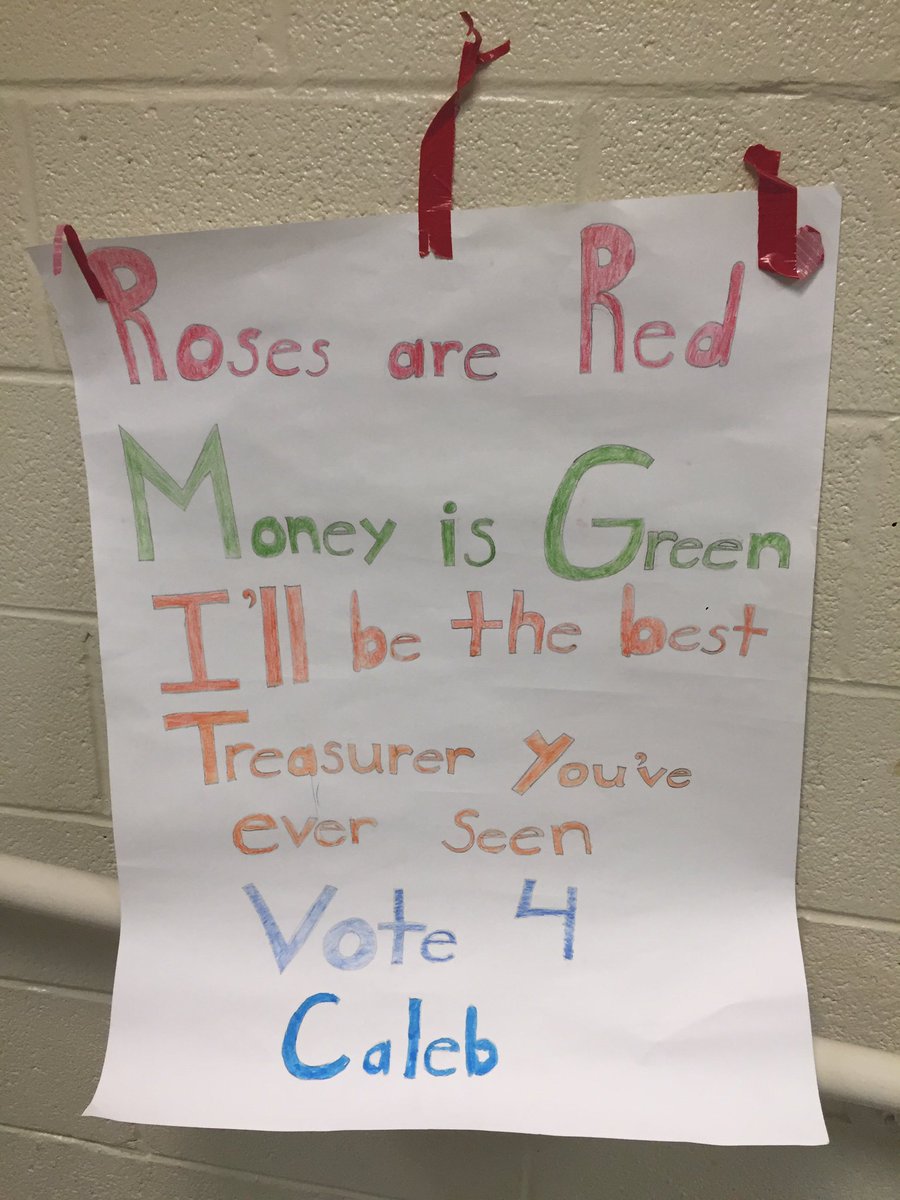 Roses are Red
Money is Green
I'll be the best
Treasurer You've
ever seen
Vote 4
Caleb